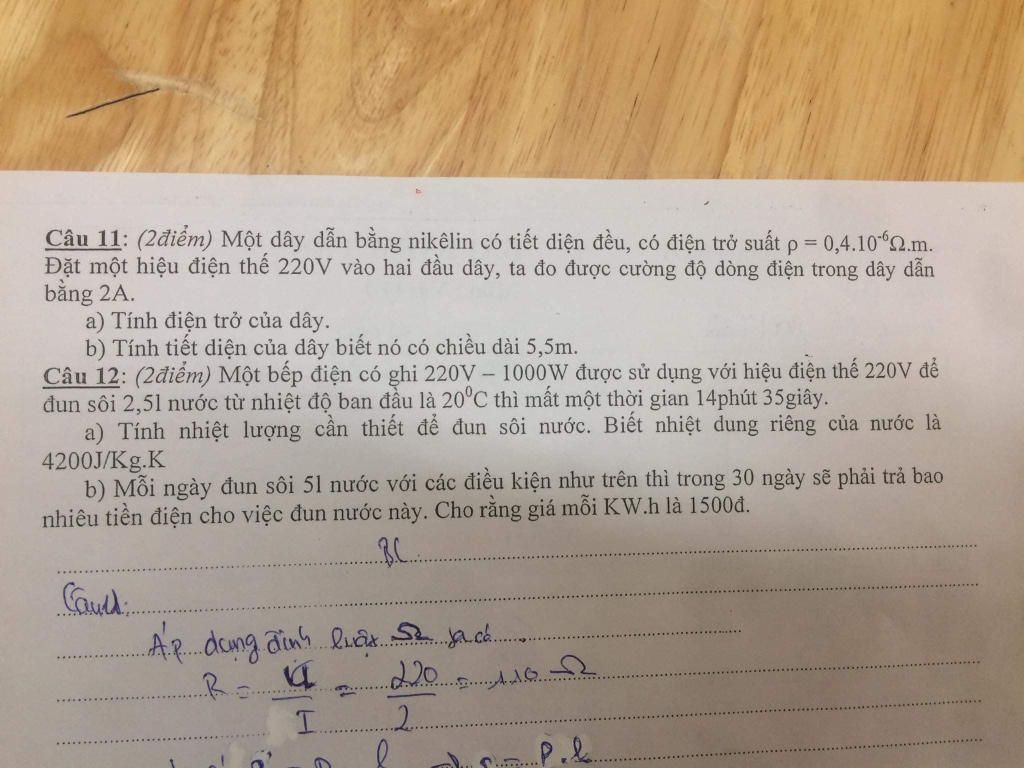 Câu 11: (2điểm) Một dây dẫn bằng nikêlin có tiết diện đều, có điện trở suất ρ = 0,4.10⁻⁶Ω.m.
Đặt một hiệu điện thế 220V vào hai đầu dây, ta đo được cường độ dòng điện trong dây dẫn
bằng 2A.
a) Tính điện trở của dây.
b) Tính tiết diện của dây biết nó có chiều dài 5,5m.
Câu 12: (2điểm) Một bếp điện có ghi 220V – 1000W được sử dụng với hiệu điện thế 220V để
đun sôi 2,5l nước từ nhiệt độ ban đầu là 20⁰C thì mất một thời gian 14phút 35giây.
a) Tính nhiệt lượng cần thiết để đun sôi nước. Biết nhiệt dung riêng của nước là
4200J/Kg.K
b) Mỗi ngày đun sôi 5l nước với các điều kiện như trên thì trong 30 ngày sẽ phải trả bao
nhiêu tiền điện cho việc đun nước này. Cho rằng giá mỗi KW.h là 1500đ.
Câu 11:
Áp dụng định luật Ω ta có
R = U/I = 220/2 = 110 Ω